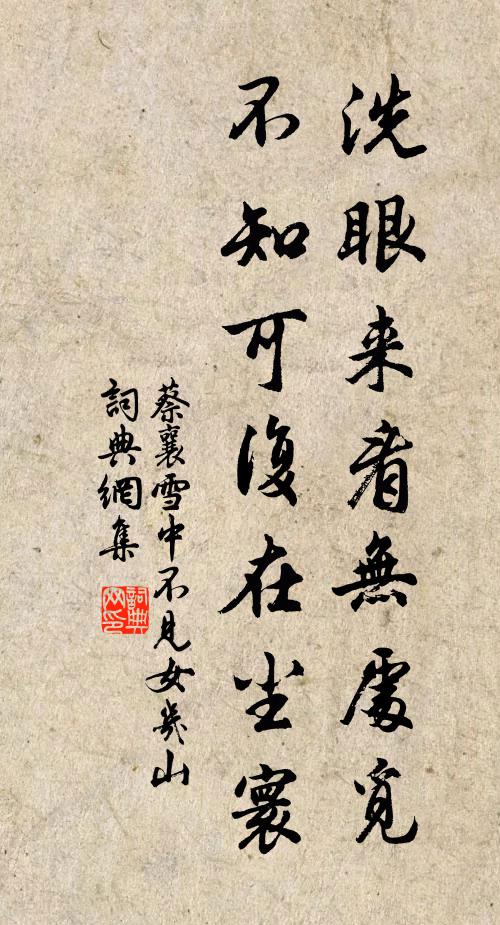 洗眼来看無處覓
不知可復在尘寰
蔡襄雪中不見女几山
詞典網集
詞典
网印